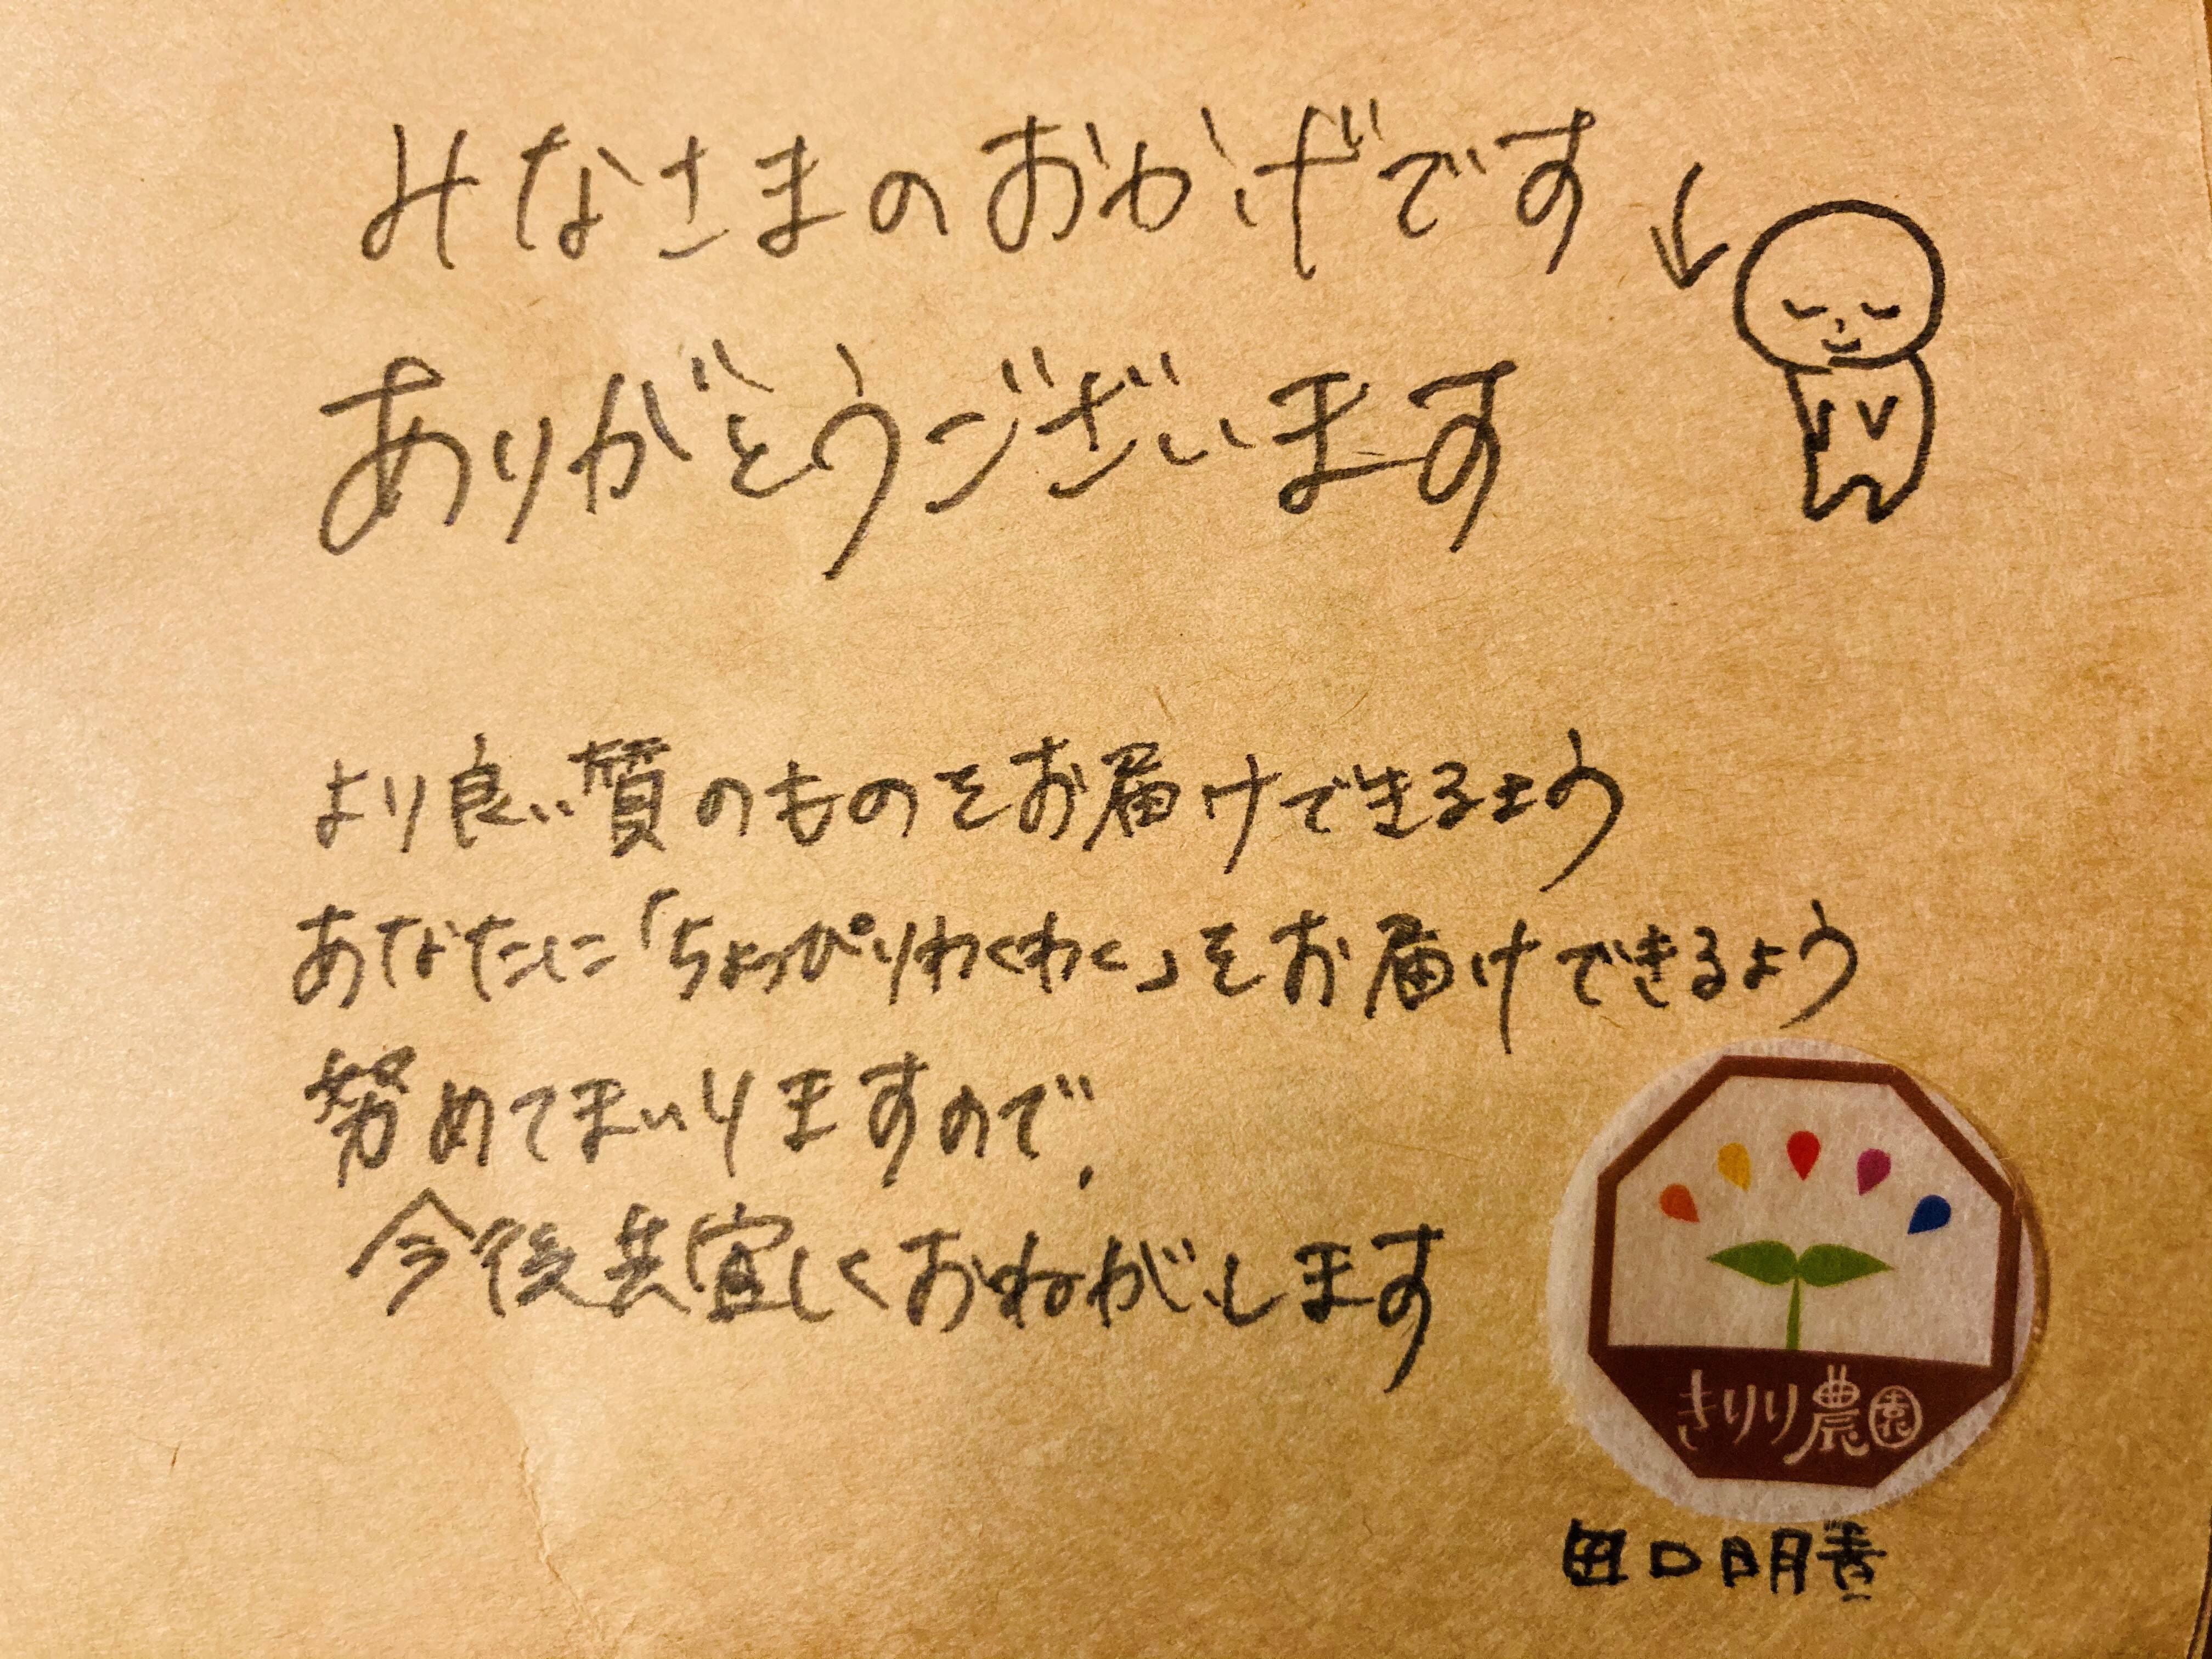 みなさまのおかげです
ありがとうございます
より良い質のものをお届けできるよう
あなたに「ちょっぴりわくわく」をお届けできるよう
努めてまいりますので、
今後共宜しくおねがいします
きりり農園
田口明